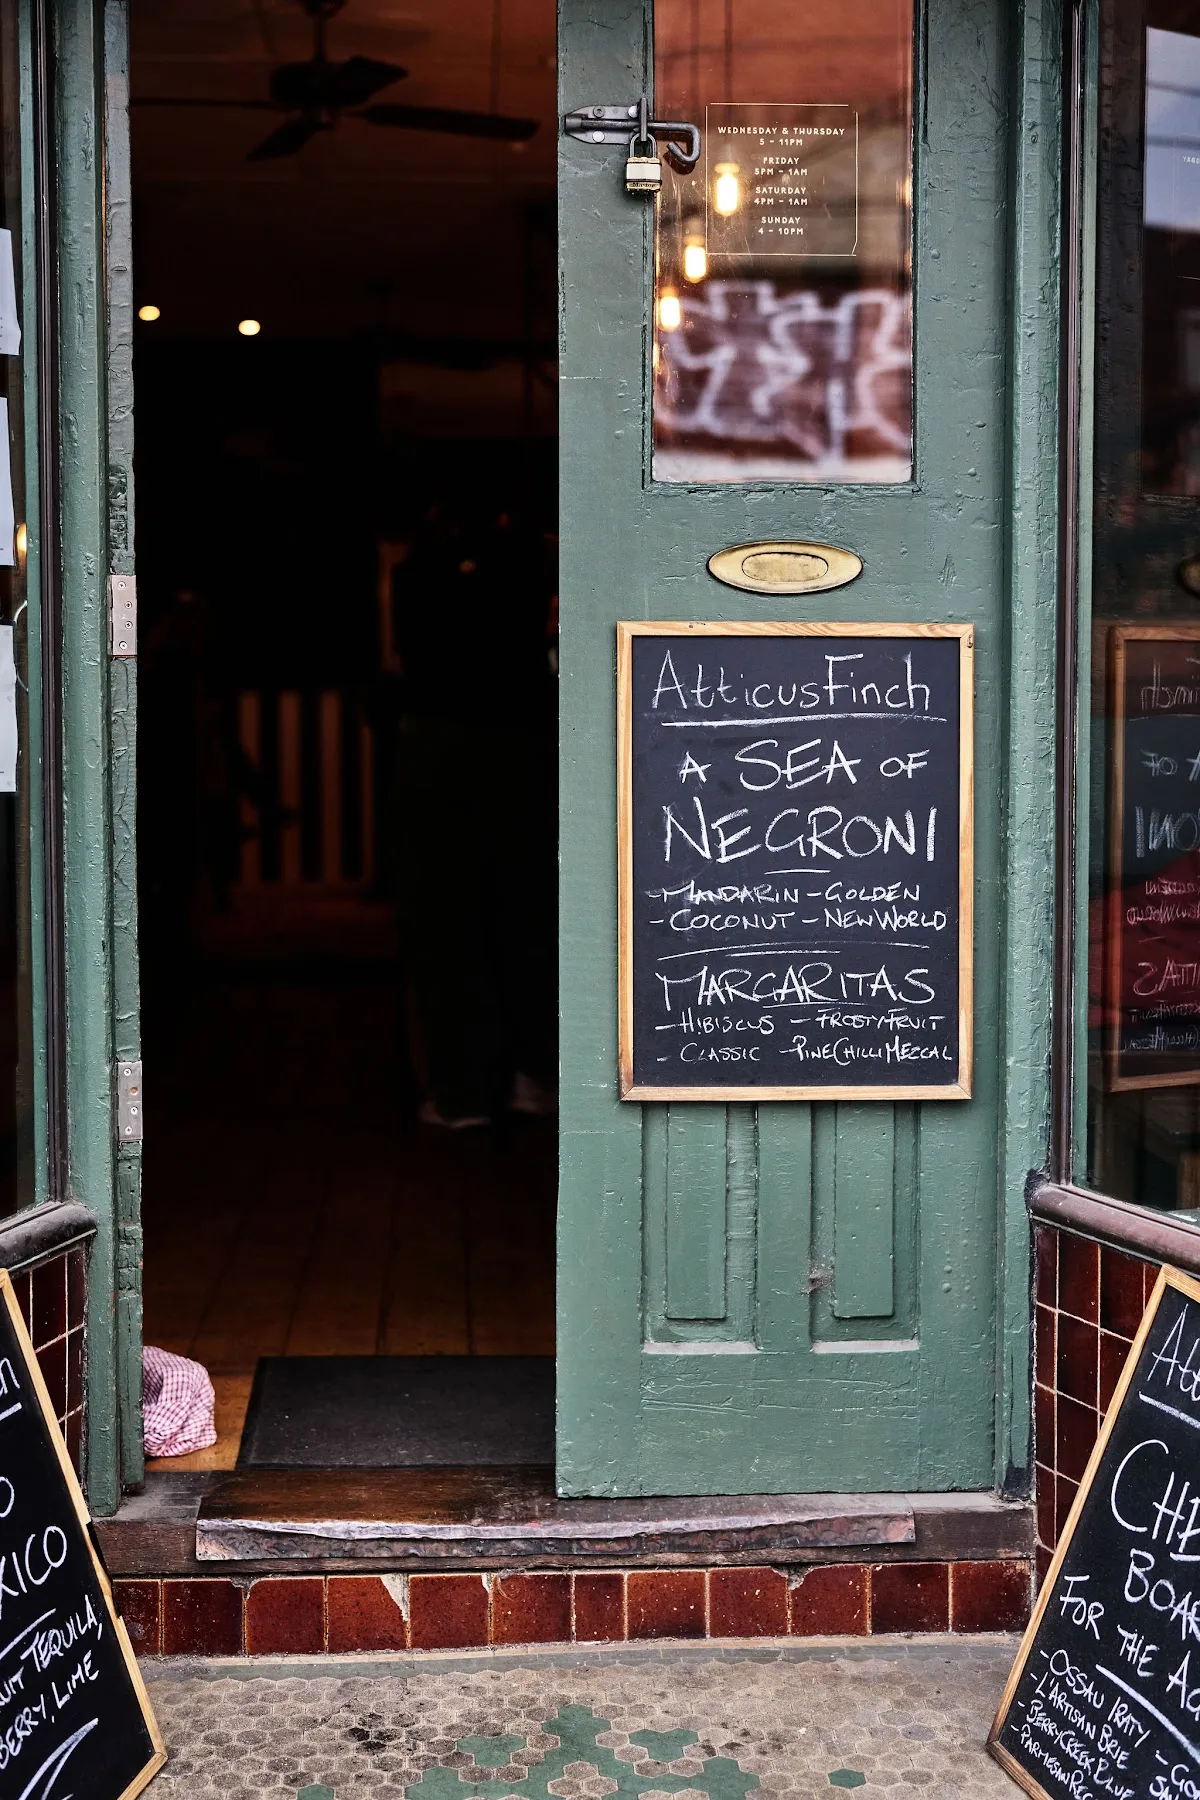 WEDNESDAY & THURSDAY
5 - 11PM
FRIDAY
5PM - 1AM
SATURDAY
4PM - 1AM
SUNDAY
4 - 10PM
AtticusFinch
A SEA OF
NEGRONI
- MANDARIN - GOLDEN
- COCONUT - NEW WORLD
MARGARITAS
- HIBISCUS - FROSTY FRUIT
- CLASSIC - PINE CHILLI MEZCAL
XICO
TEQUILA,
BERRY, LIME
Att
CHE
BOAR
FOR THE A
- OSSAU IRATY
- L'ARTISAN BRIE
- BERRYS CREEK BLUE
- PARMESAN REG